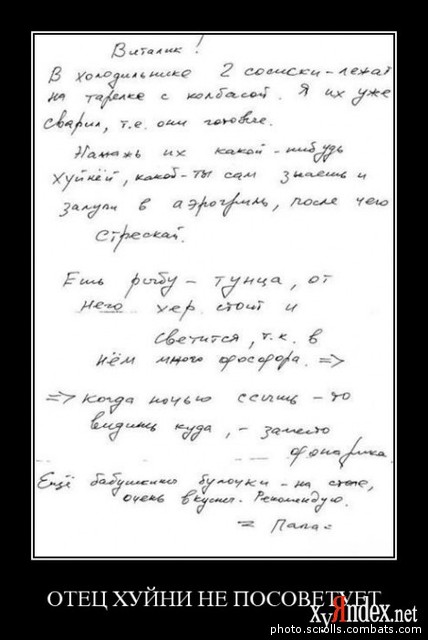 Виталик!
В холодильнике 2 сосиски - лежат
на тарелке с колбасой. Я их уже
сварил, т.е. они готовые.
Намажь их какой-нибудь
хуйнёй, какой - ты сам знаешь и
запули в аэрогриль, после чего
стрескай.
Ешь рыбу - тунца, от
него хер стоит и
светится, т.к. в
нём много фосфора. =>
=> когда ночью ссышь - то
видишь куда, - заместо
фонарика.
Ещё бабушкины булочки - на столе,
очень вкусные. Рекомендую.
= Папа =
ОТЕЦ ХУЙНИ НЕ ПОСОВЕТУЕТ
ХуЯndex.net
photo.scrolls.combats.com